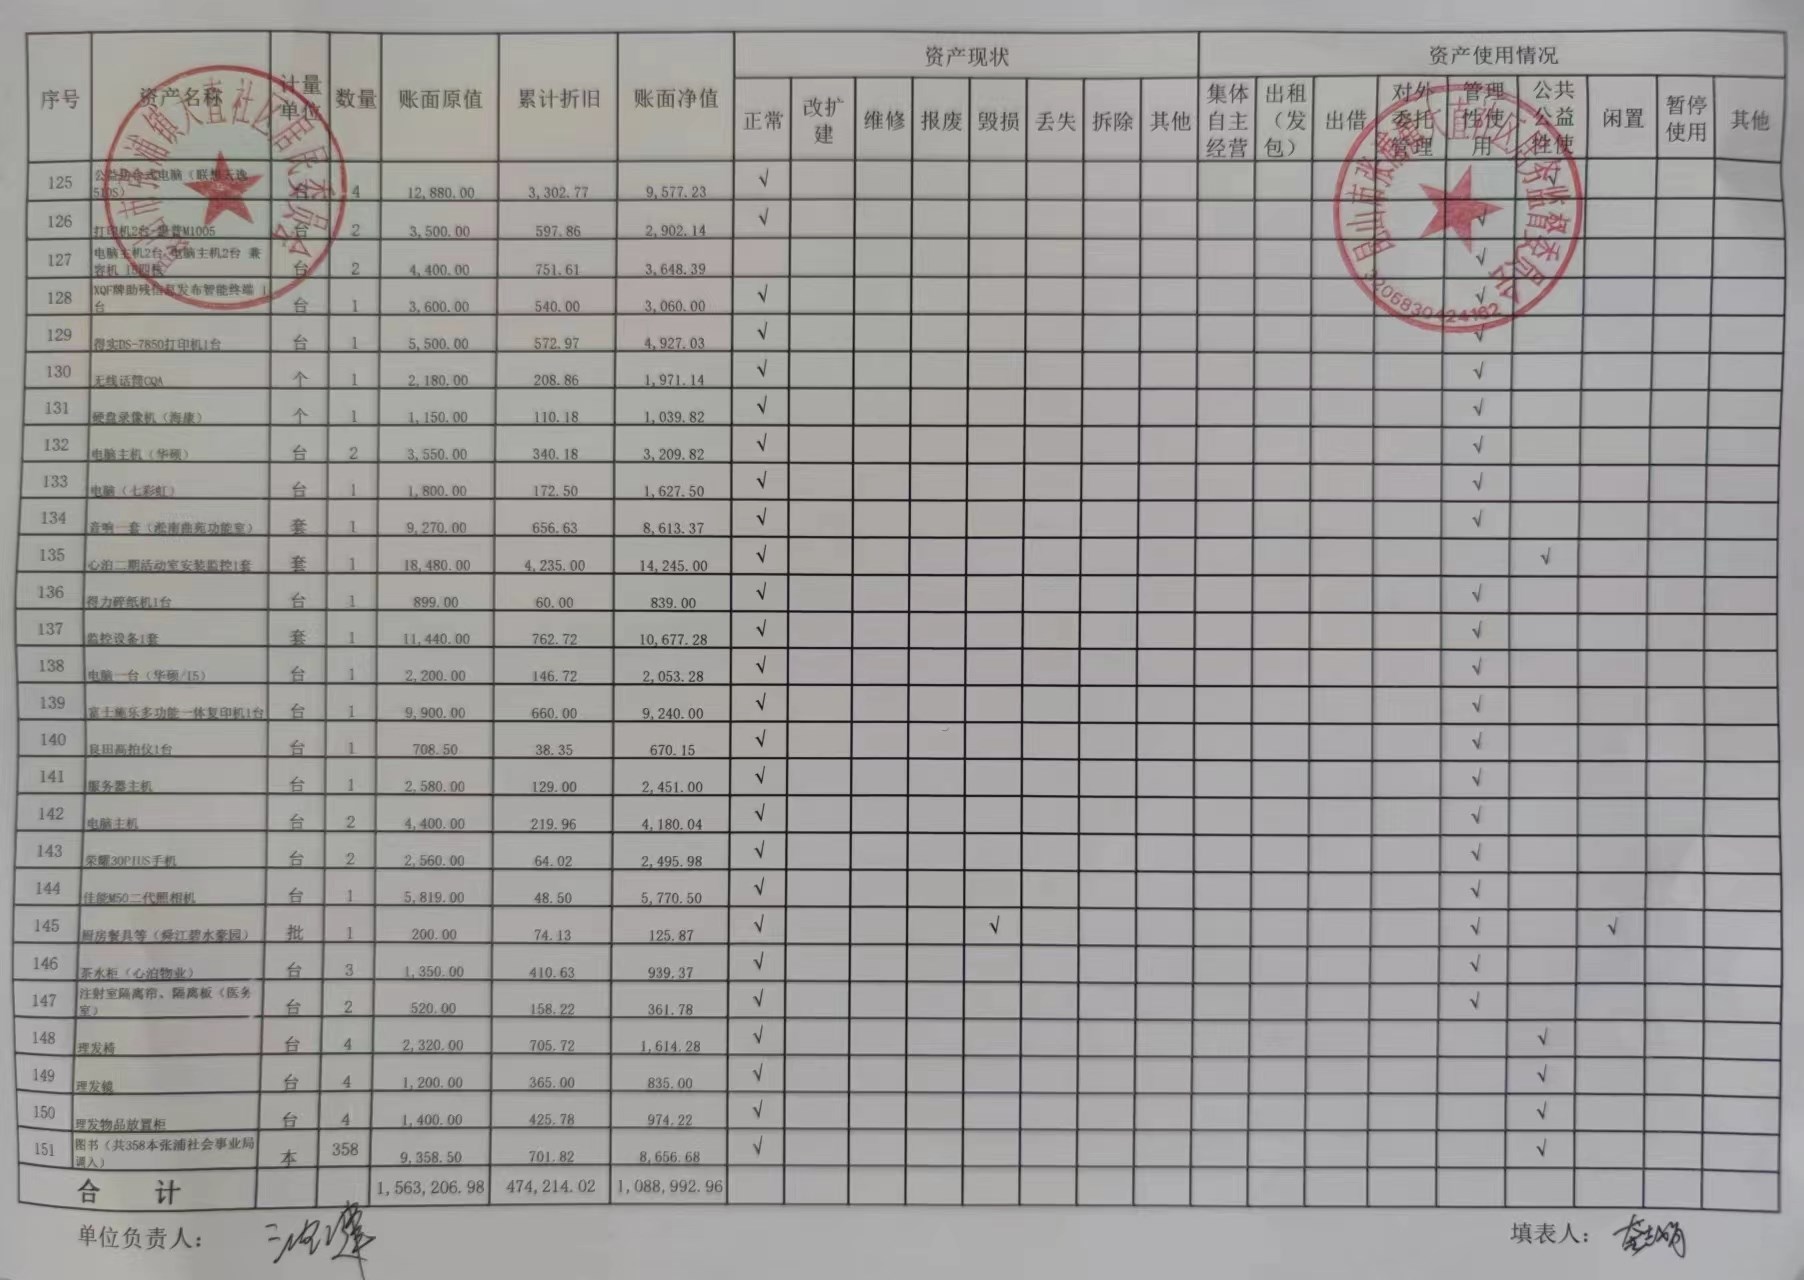 序号 资产名称 计量单位 数量 账面原值 累计折旧 账面净值 资产现状 资产使用情况
正常 改扩建 维修 报废 毁损 丢失 拆除 其他 集体自主经营 出租（发包） 出借 对外委托管理 管理性使用 公共公益性使 闲置 暂停使用 其他
125 台式电脑（联想天逸510S） 台 4 12,880.00 3,302.77 9,577.23 √ √
126 打印机2台-惠普M1005 台 2 3,500.00 597.86 2,902.14 √ √
127 电脑主机2台 电脑主机2台 兼容机 I5四核 台 2 4,400.00 751.61 3,648.39 √
128 XQF牌助残信息发布智能终端 1台 台 1 3,600.00 540.00 3,060.00 √ √
129 得实DS-7850打印机1台 台 1 5,500.00 572.97 4,927.03 √ √
130 无线话筒CQA 个 1 2,180.00 208.86 1,971.14 √ √
131 硬盘录像机（海康） 个 1 1,150.00 110.18 1,039.82 √ √
132 电脑主机（华硕） 台 2 3,550.00 340.18 3,209.82 √ √
133 电脑（七彩虹） 台 1 1,800.00 172.50 1,627.50 √ √
134 音响一套（淞南鼎苑功能室） 套 1 9,270.00 656.63 8,613.37 √ √
135 心泊二期活动室安装监控1套 套 1 18,480.00 4,235.00 14,245.00 √ √
136 得力碎纸机1台 台 1 899.00 60.00 839.00 √ √
137 监控设备1套 套 1 11,440.00 762.72 10,677.28 √ √
138 电脑一台（华硕/I5） 台 1 2,200.00 146.72 2,053.28 √ √
139 富士施乐多功能一体复印机1台 台 1 9,900.00 660.00 9,240.00 √ √
140 良田高拍仪1台 台 1 708.50 38.35 670.15 √ √
141 服务器主机 台 1 2,580.00 129.00 2,451.00 √ √
142 电脑主机 台 2 4,400.00 219.96 4,180.04 √ √
143 荣耀30PlUS手机 台 2 2,560.00 64.02 2,495.98 √ √
144 佳能M50二代照相机 台 1 5,819.00 48.50 5,770.50 √ √
145 厨房餐具等（舜江碧水豪园） 批 1 200.00 74.13 125.87 √ √ √ √
146 茶水柜（心泊物业） 台 3 1,350.00 410.63 939.37 √ √
147 注射室隔离帘、隔离板（医务室） 台 2 520.00 158.22 361.78 √ √
148 理发椅 台 4 2,320.00 705.72 1,614.28 √ √
149 理发镜 台 4 1,200.00 365.00 835.00 √ √
150 理发物品放置柜 台 4 1,400.00 425.78 974.22 √ √
151 图书（共358本张浦社会事业局调入） 本 358 9,358.50 701.82 8,656.68 √ √
合 计 1,563,206.98 474,214.02 1,088,992.96
单位负责人： 填表人：
昆山市张浦镇大直社区居民委员会
昆山市张浦镇大直社区居务监督委员会
3206830424162